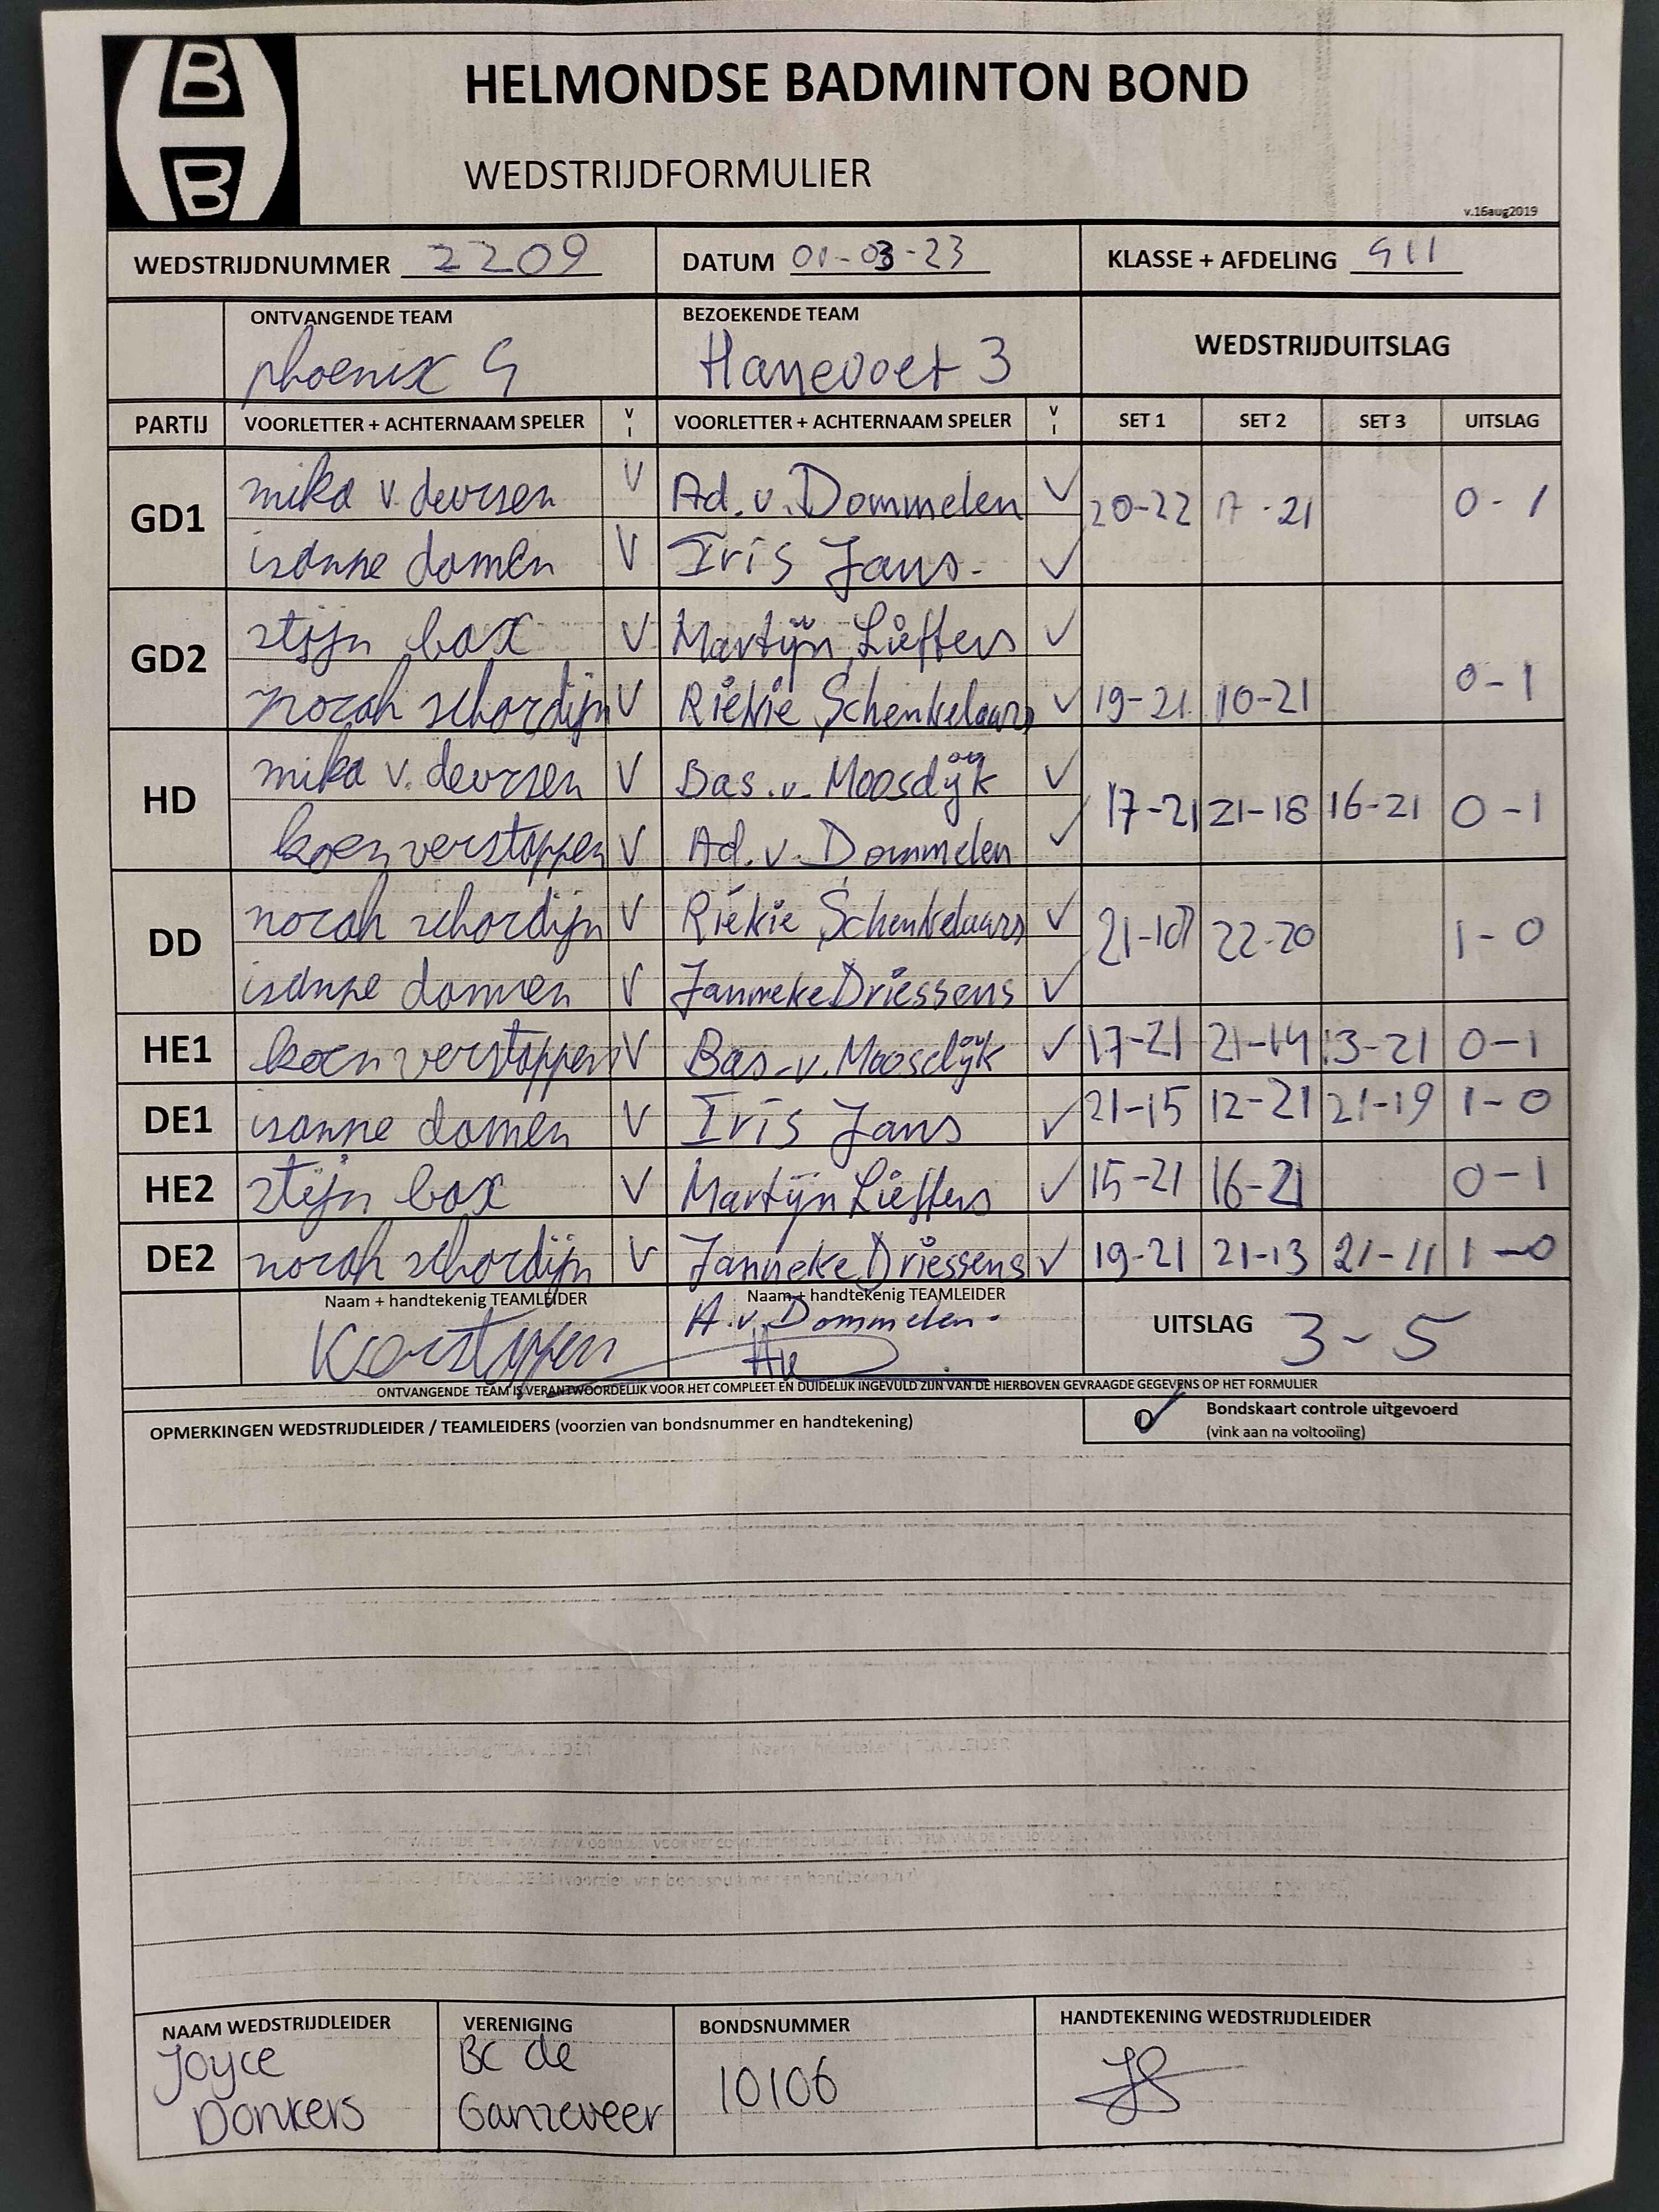 B
B
HELMONDSE BADMINTON BOND
WEDSTRIJDFORMULIER
v.16aug2019
WEDSTRIJDNUMMER 2209 DATUM 01-03-23 KLASSE + AFDELING GII
ONTVANGENDE TEAM BEZOEKENDE TEAM WEDSTRIJDUITSLAG
phoenix G Hanevoet 3
PARTIJ VOORLETTER + ACHTERNAAM SPELER V I VOORLETTER + ACHTERNAAM SPELER V I SET 1 SET 2 SET 3 UITSLAG
GD1 mika v. deursen V Ad. v. Dommelen ✓ 20-22 17-21 0-1
isanne domen V Iris Jans. ✓
GD2 stijn box V Martijn Lieffers ✓
norah schordijn V Riekie Schenkelaars ✓ 19-21 10-21 0-1
HD mika v. deursen V Bas. v. Moosdijk ✓ 17-21 21-18 16-21 0-1
koen verstappen V Ad. v. Dommelen ✓
DD norah schordijn V Riekie Schenkelaars ✓ 22-20 1-0
isanne domen V Janneke Driessens ✓
HE1 koen verstappen V Bas. v. Moosdijk ✓ 17-21 21-14 13-21 0-1
DE1 isanne domen V Iris Jans ✓ 21-15 12-21 21-19 1-0
HE2 stijn box V Martijn Lieffers ✓ 15-21 16-21 0-1
DE2 norah schordijn V Janneke Driessens ✓ 19-21 21-13 21-11 1-0
Naam + handtekenig TEAMLEIDER Naam + handtekenig TEAMLEIDER
A. v. Dommelen UITSLAG 3-5
ONTVANGENDE TEAM IS VERANTWOORDELIJK VOOR HET COMPLEET EN DUIDELIJK INGEVULD ZIJN VAN DE HIERBOVEN GEVRAAGDE GEGEVENS OP HET FORMULIER
OPMERKINGEN WEDSTRIJDLEIDER / TEAMLEIDERS (voorzien van bondsnummer en handtekening) Bondskaart controle uitgevoerd
(vink aan na voltooiing)
NAAM WEDSTRIJDLEIDER VERENIGING BONDSNUMMER HANDTEKENING WEDSTRIJDLEIDER
Joyce BC de 10106
Donkers Ganzeveer